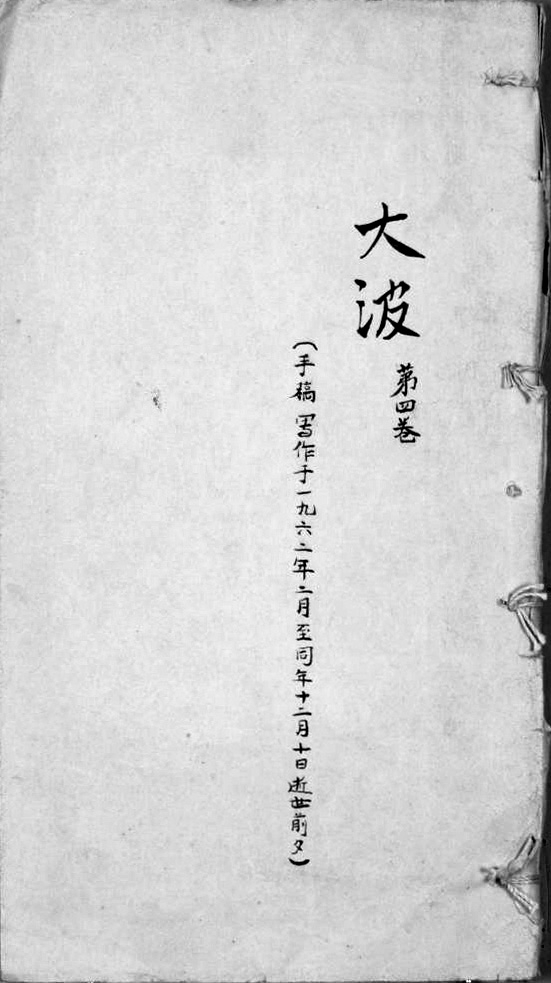 大波
第四卷
(手稿 写作于一九六二年二月至同年十二月十日逝世前夕)